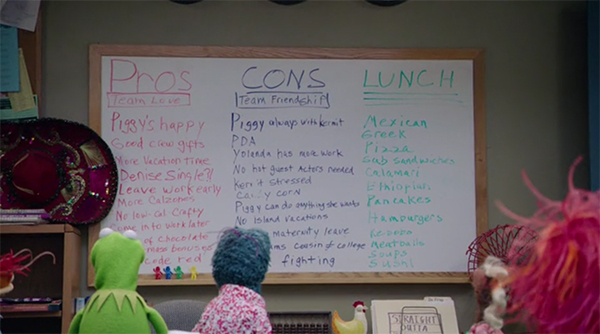 Pros
Team Love
Piggy's happy
Good crew gifts
More Vacation time
Denise Single?!
Leave work early
More Calzones
No low-cal Crafty
in to work later
of chocolate
bonus
code red
CONS
Team Friendship
Piggy always with Kermit
PDA
Yolanda has more work
No hot guest Actors needed
stressed
corn
Piggy can do anything she wants
No Island Vacations
maternity leave
cousin of college
fighting
LUNCH
Mexican
Greek
Pizza
Sub Sandwiches
Calamari
Ethiopian
Pancakes
Hamburgers
Meatballs
Soups
Sushi
STRAIGHT
OUTTA